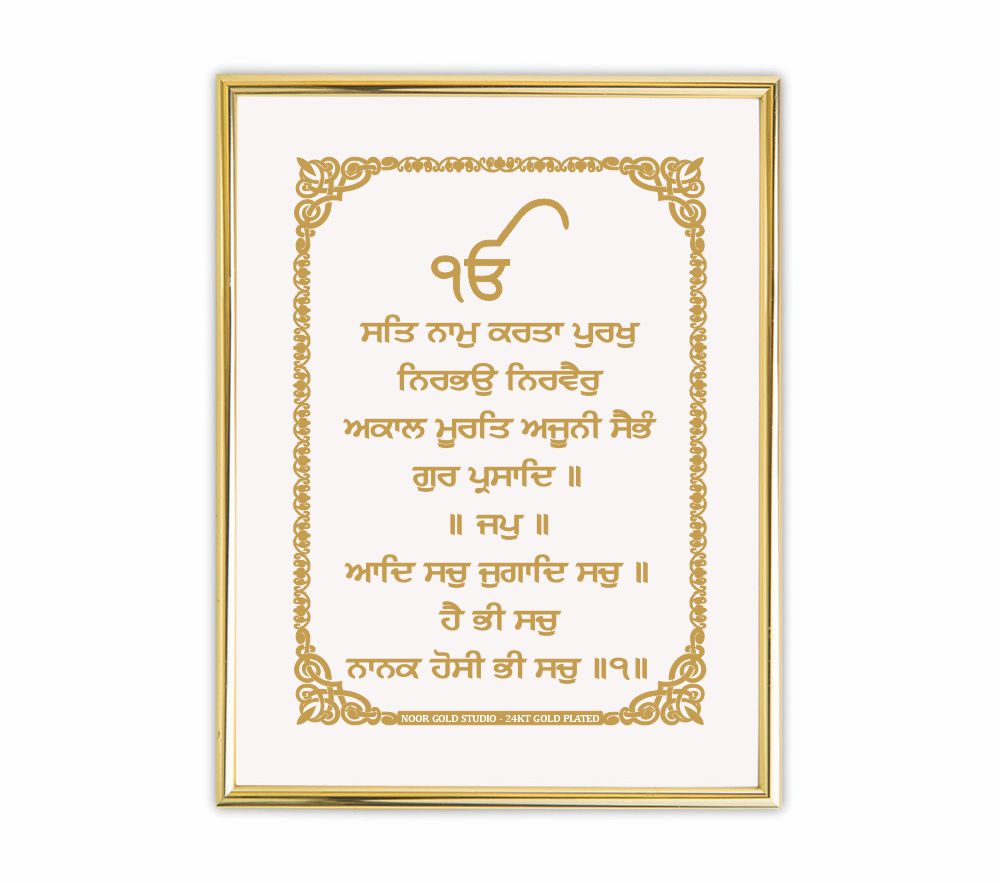 ੴ
ਸਤਿ ਨਾਮੁ ਕਰਤਾ ਪੁਰਖੁ
ਨਿਰਭਉ ਨਿਰਵੈਰੁ
ਅਕਾਲ ਮੂਰਤਿ ਅਜੂਨੀ ਸੈਭੰ
ਗੁਰ ਪ੍ਰਸਾਦਿ ॥
॥ ਜਪੁ ॥
ਆਦਿ ਸਚੁ ਜੁਗਾਦਿ ਸਚੁ ॥
ਹੈ ਭੀ ਸਚੁ
ਨਾਨਕ ਹੋਸੀ ਭੀ ਸਚੁ ॥੧॥
NOOR GOLD STUDIO - 24KT GOLD PLATED